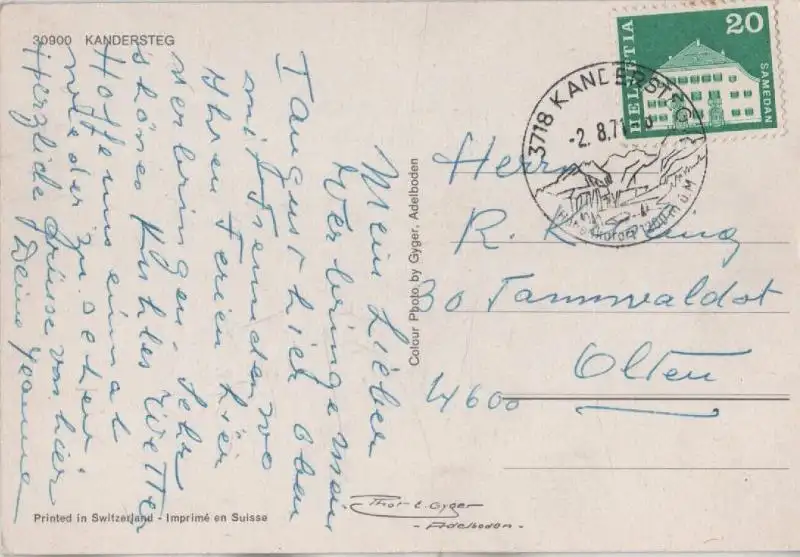 30900 KANDERSTEG
Mein Lieber
Verbringe mein
1 august hier oben
mit Freunden wo
ihren Ferien hier
verbringen. Sehr
schönes kühles Wetter
Hoffe uns einmal
wieder zu sehen
Herzliche Grüsse von hier
Deine Jeanne
Printed in Switzerland - Imprimé en Suisse
Colour Photo by Gyger, Adelboden
Thor E. Gyger
- Adelboden -
HELVETIA
20
SAMEDAN
3718 KANDERSTEG
-2. 8.71
1200 m ü. M
Herrn
R.
30 Tannwaldst
4600 Olten